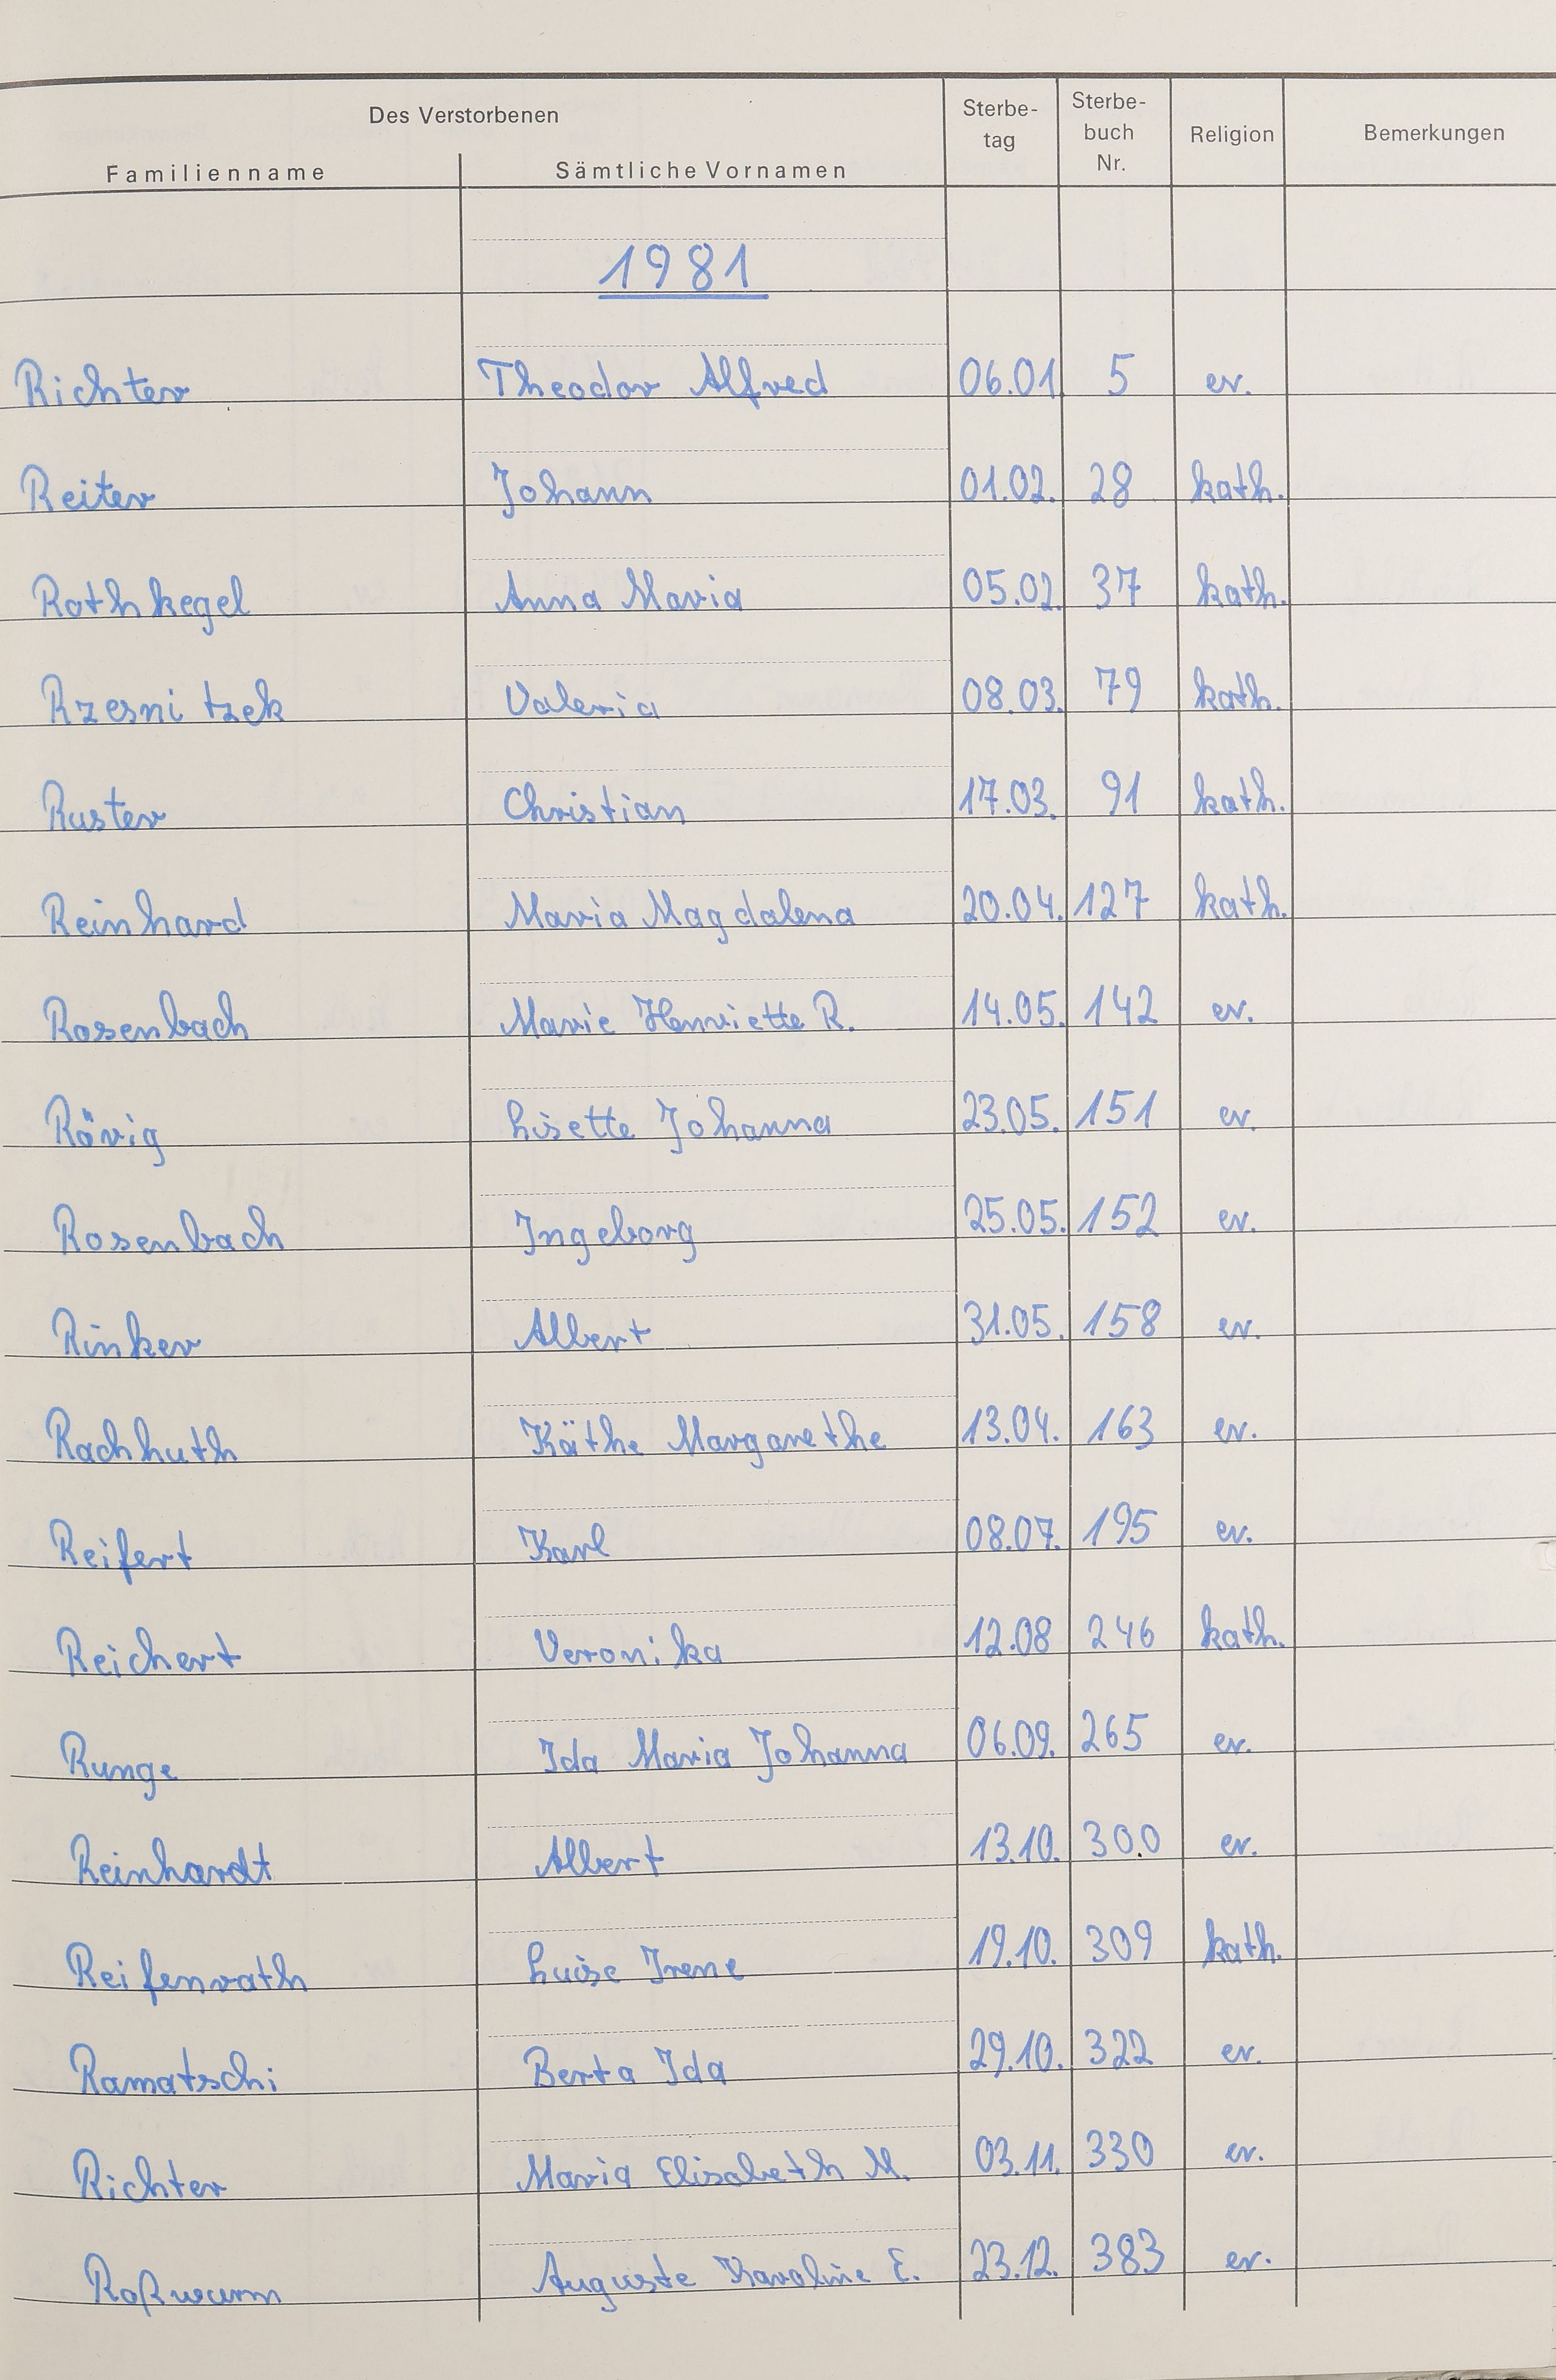 Des Verstorbenen
Familienname Sämtliche Vornamen Sterbe- tag Sterbe- buch Nr. Religion Bemerkungen
1981
Richter Theodor Alfred 06.01. 5 ev.
Reiter Johann 01.02. 28 kath.
Rothkegel Anna Maria 05.02. 37 kath.
Rzesnitzek Valeria 08.03. 79 kath.
Ruster Christian 17.03. 91 kath.
Reinhard Maria Magdalena 20.04. 127 kath.
Rosenbach Marie Henriette R. 14.05. 142 ev.
Rörig Lisette Johanna 23.05. 151 ev.
Rosenbach Ingeborg 25.05. 152 ev.
Rinker Albert 31.05. 158 ev.
Rachhuth Käthe Margarethe 13.04. 163 ev.
Reifert Karl 08.07. 195 ev.
Reichert Veronika 12.08 246 kath.
Runge Ida Maria Johanna 06.09. 265 ev.
Reinhardt Albert 13.10. 300 ev.
Reifenrath Luise Irene 19.10. 309 kath.
Ramatschi Berta Ida 29.10. 322 ev.
Richter Maria Elisabeth M. 03.11. 330 ev.
Roßwurm Auguste Karoline E. 23.12. 383 ev.